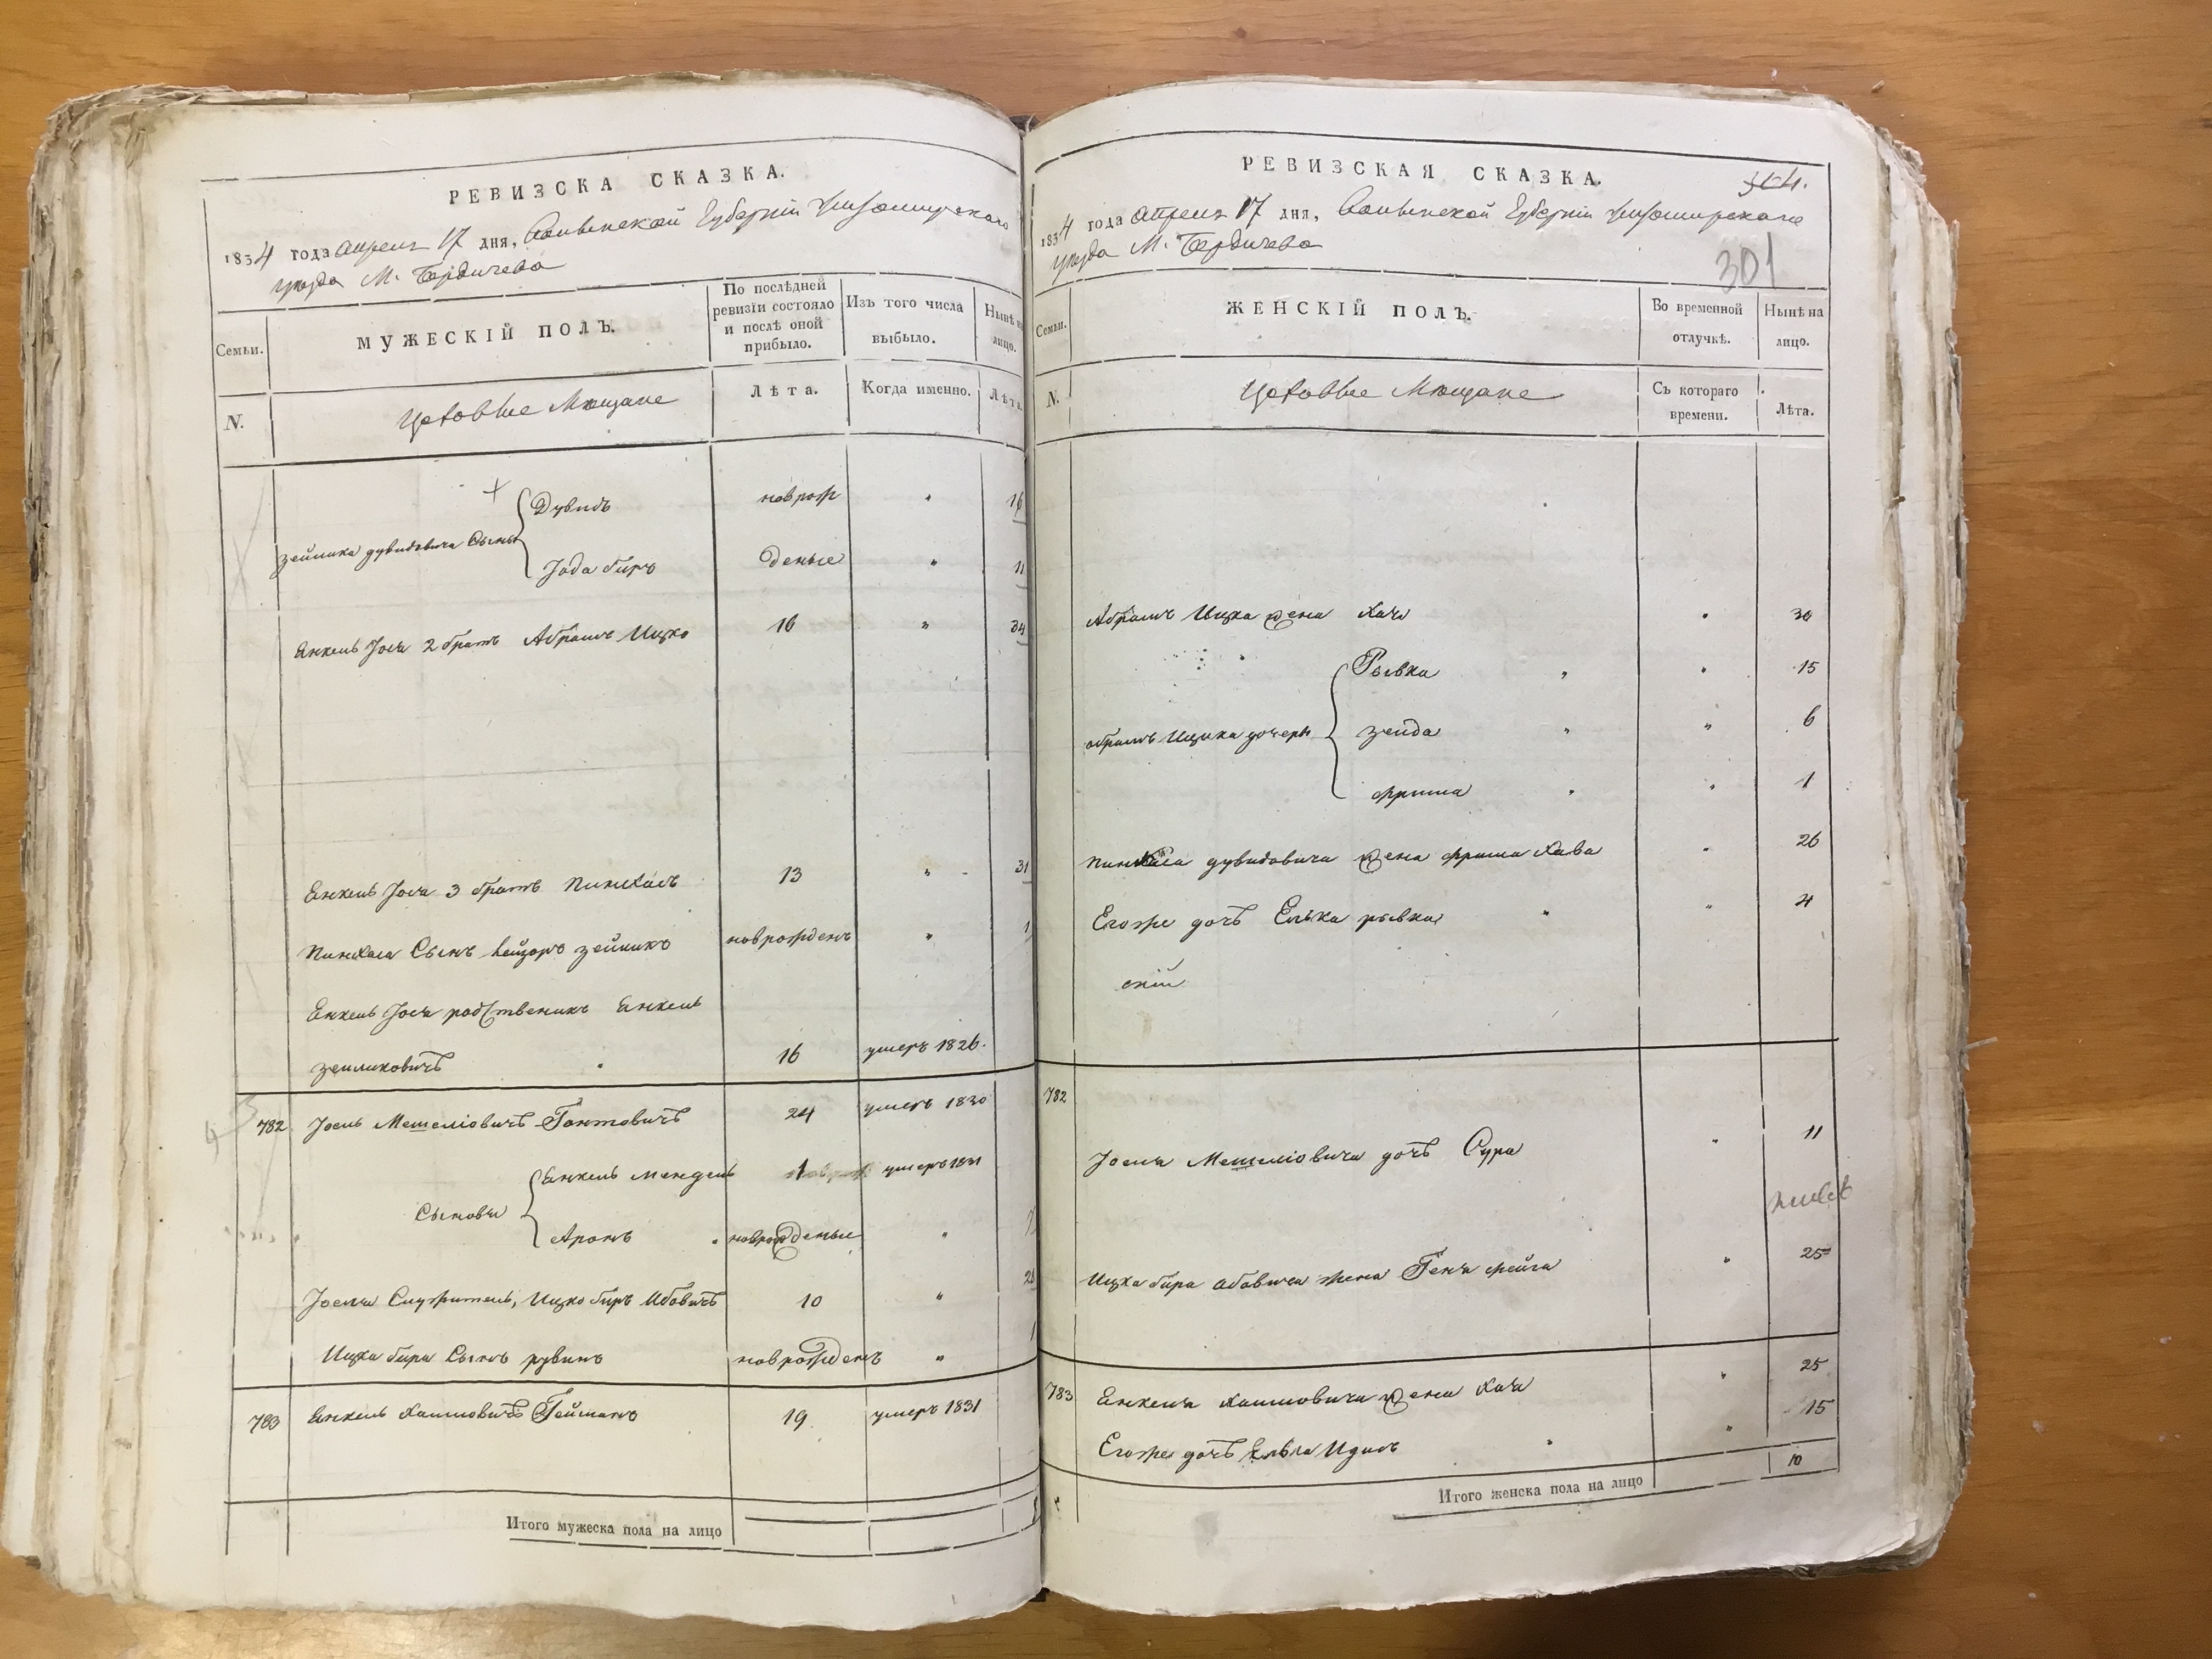 РЕВИЗСКА СКАЗКА.
1834 года апреля 17 дня, Волынской Губернии Житомирскаго
уезда М. Бердичева
Семьи.
МУЖЕСКІЙ ПОЛЪ.
По послѣдней ревизіи состояло и послѣ оной прибыло.
Изъ того числа выбыло.
Нынѣ на лицо.
N.
Цеховые Мещане
Лѣта.
Когда именно.
Лѣта
Дувидъ новрож 16
Зейлика дувидовича Сыны
Іода биръ деные 11
Енкель Іося 2 братъ Абрамъ Ицко 16 34
Енкель Іося 3 братъ Пинхасъ 13 31
Пинхаса Сынъ лейзоръ зейликъ новрожденъ 1
Енкель Іося родственикъ Енкель
зейликовичъ 16 умеръ 1826.
782 Іось Мешеліовичъ Гонтовичъ 24 умеръ 1830
Енкель мендель 1 умеръ 1831
Сыновья
Аронъ новрожденые
Іоселя Служитель, Ицко биръ Абовичъ 10
Ицка бира Сынъ рувинъ новрожденъ 1
783 Енкель Хаимовичъ Гейманъ 19 умеръ 1831
Итого мужеска пола на лицо
РЕВИЗСКАЯ СКАЗКА.
1834 года апреля 17 дня, Волынской Губерніи Житомирскаго
уезда М. Бердичева
301
Семьи.
ЖЕНСКІЙ ПОЛЪ.
Во временной отлучкѣ.
Нынѣ на лицо.
N.
Цеховые Мещане
Съ котораго времени.
Лѣта.
Абрамъ Ицка жена Хая 30
Рывка 15
Абрамъ Ицика дочери зелда 6
фрима 1
Пинхаса дувидовича жена фрима Хава 26
Егоже дочь Елька рывка 4
782
Іоселя Мешеліовича дочь Сура 11
Ицка бира абовича жена Геня фейга 25
783 Енкеля Хаимовича жена Хая 25
Егоже дочь Идись 15
Итого женска пола на лицо 10